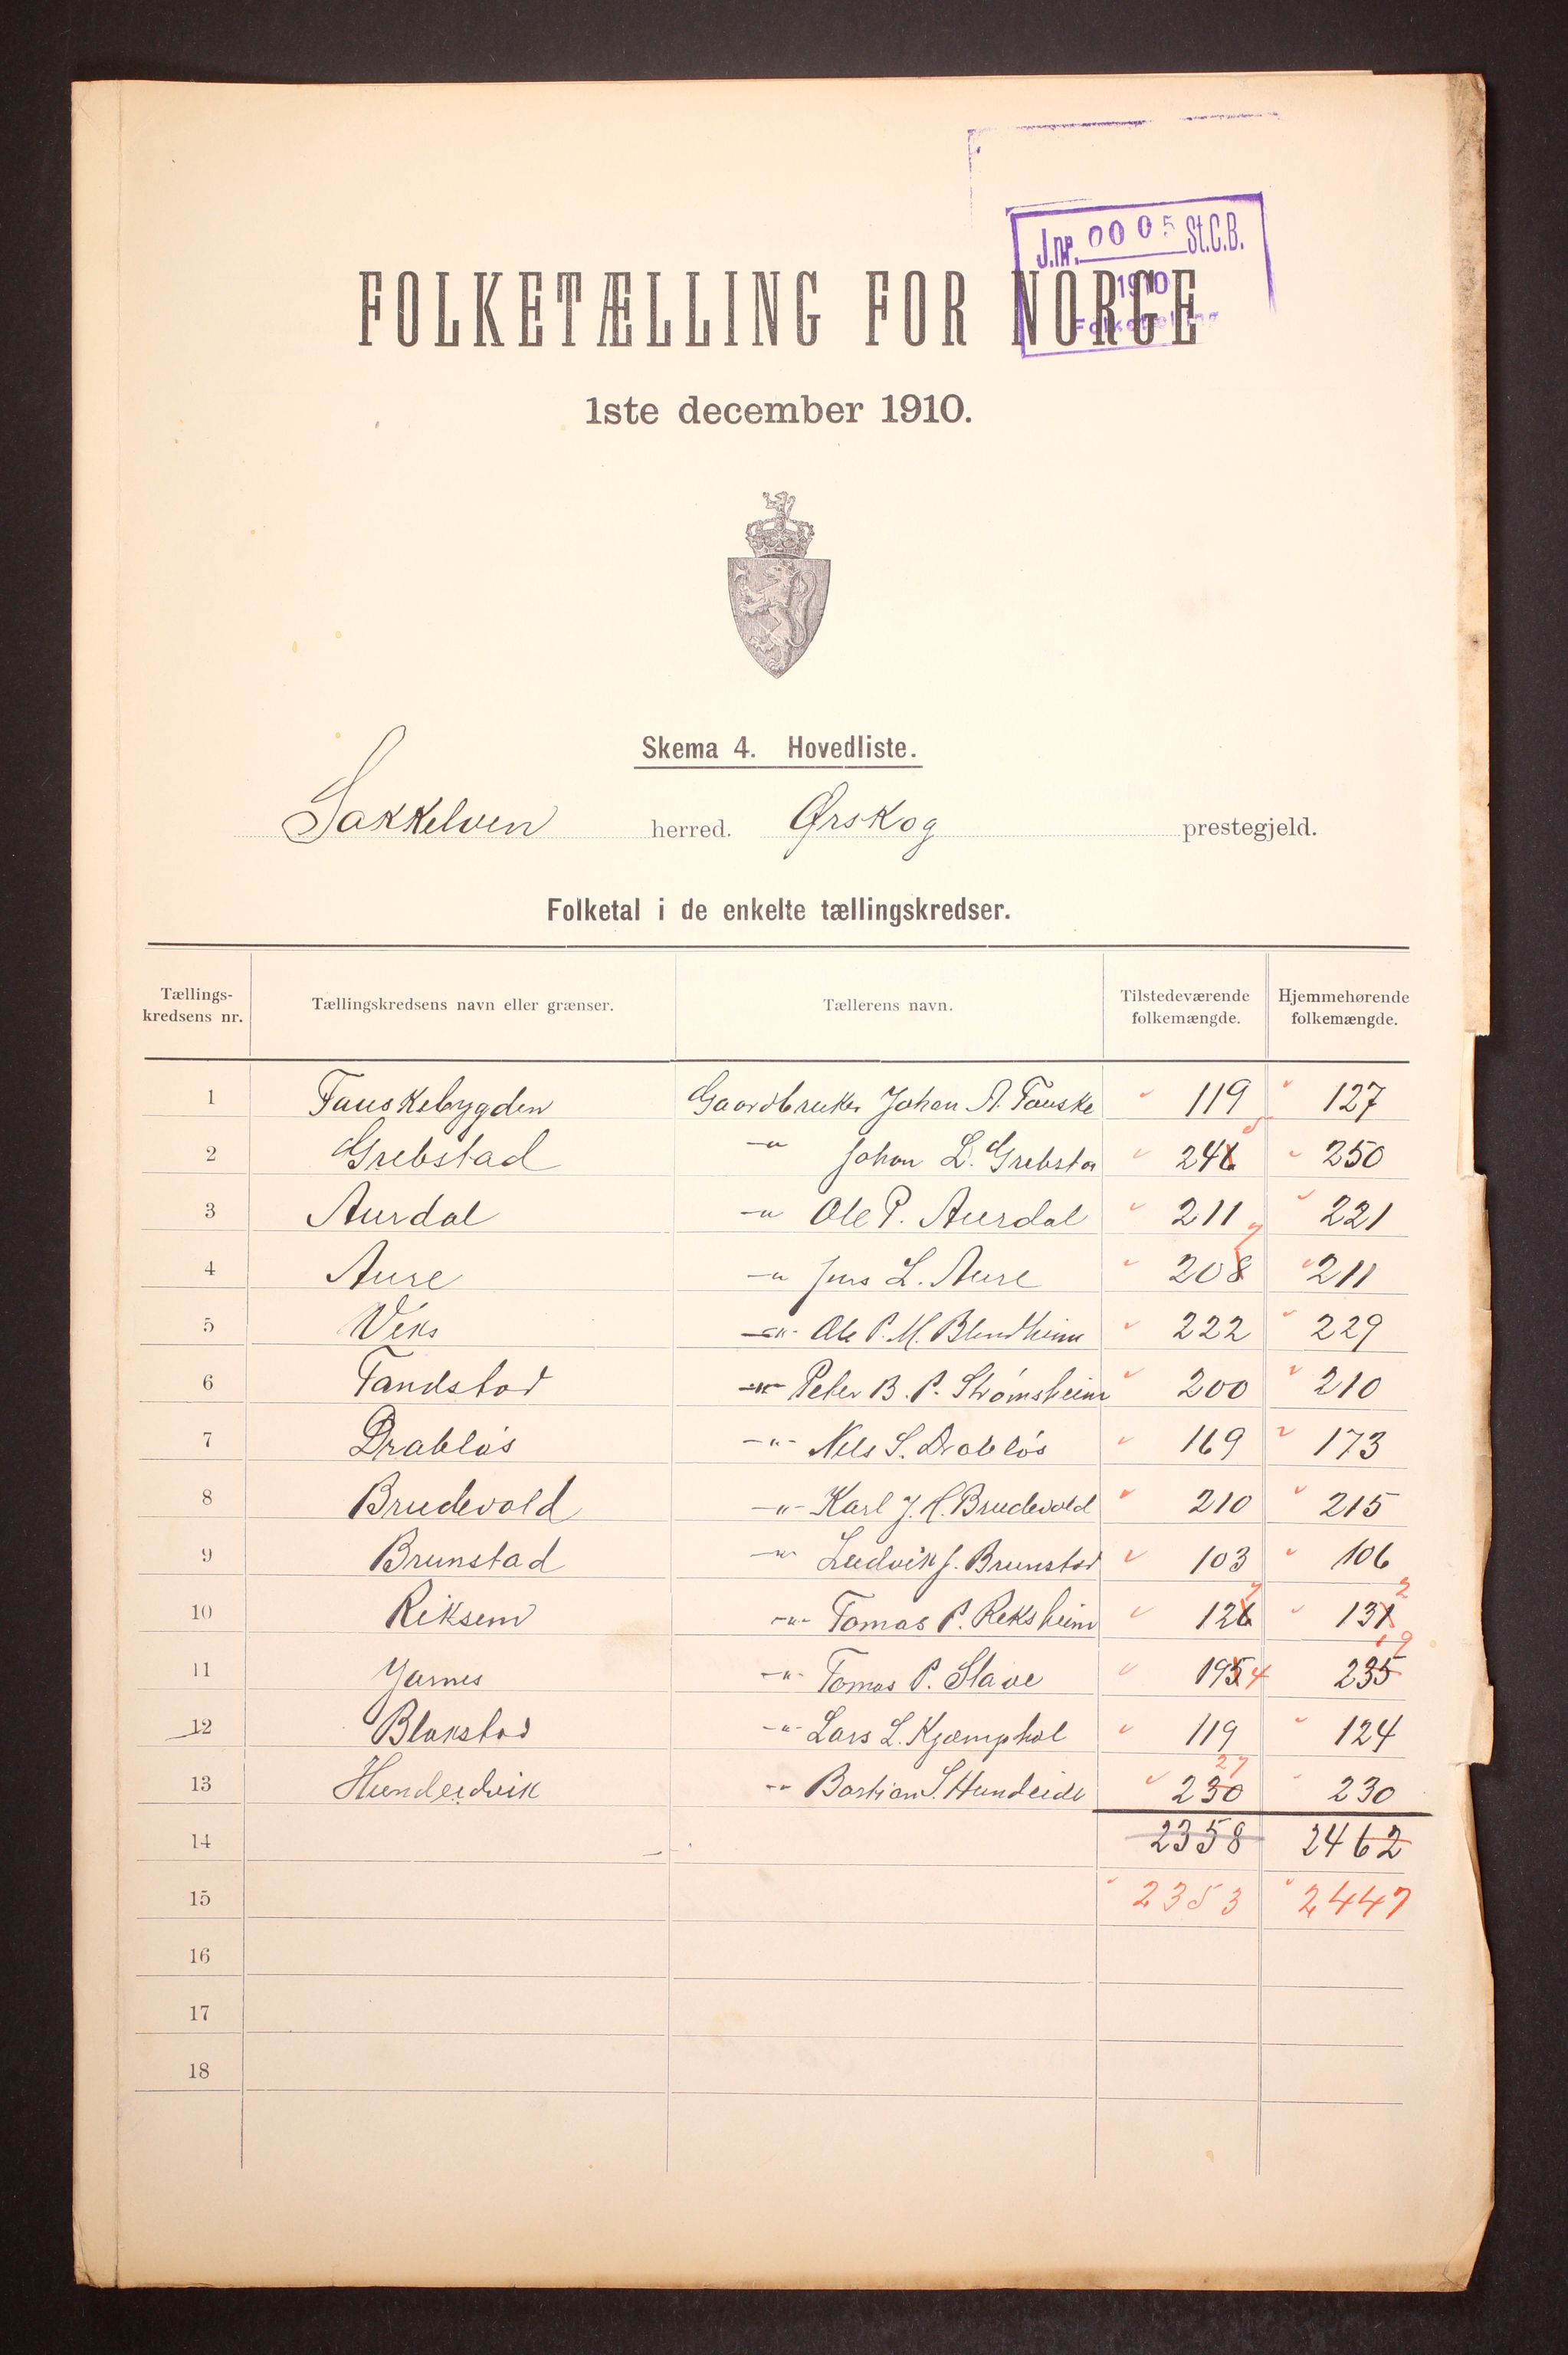 J.nr. 0005 St.C.B.
1910
Folketælling
FOLKETÆLLING FOR NORGE
1ste december 1910.
Skema 4. Hovedliste.
Søkkelven herred. Ørskog prestegjeld.
Folketal i de enkelte tællingskredser.
Tællings-kredsens nr. Tællingskredsens navn eller grænser. Tællerens navn. Tilstedeværende folkemængde. Hjemmehørende folkemængde.
1 Fauskebygden Gaardbruker Johan A. Fauske 119 127
2 Grebstad -"- Johan L. Grebsta 246 5 250
3 Aurdal -"- Ole P. Aurdal 211 221
4 Aure -"- Jens L. Aure 208 7 211
5 Viks -"- Ole P. M. Blindheim 222 229
6 Tandstad -"- Peter B. P. Strømsheim 200 210
7 Drabløs -"- Nils S. Drabløs 169 173
8 Brudevold -"- Karl J. H. Brudevold 210 215
9 Brunstad -"- Ludvik J. Brunstad 103 106
10 Riksem -"- Tomas P. Reksheim 126 7 131 2
11 Jarnes -"- Tomas P. Slave 195 4 235 19
12 Blakstad -"- Lars L. Kjæmphol 119 124
13 Hundeidvik -"- Bastian S. Hundeide 230 27 230
14 2358 2462
15 2353 2447
16
17
18